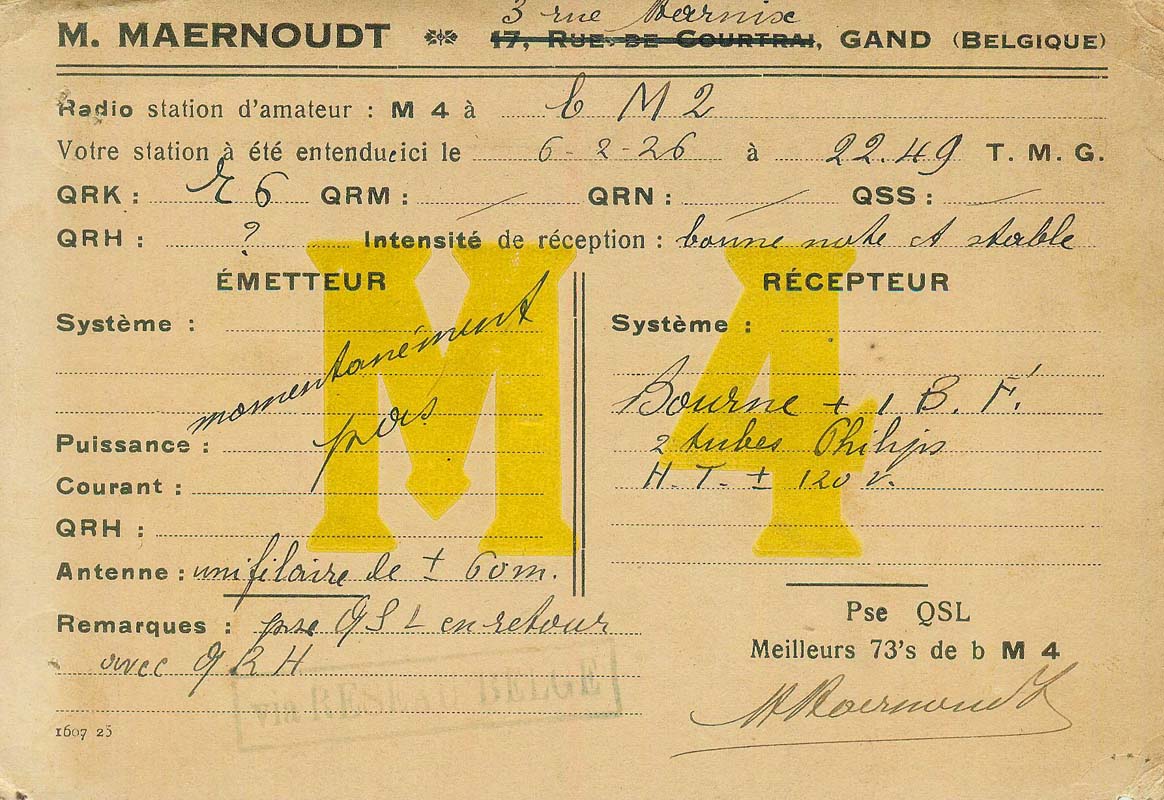 3 rue Marnix
M. MAERNOUDT 17, RUE DE COURTRAI, GAND (BELGIQUE)
Radio station d'amateur : M 4 à b M 2
Votre station à été entendue ici le 6-2-26 à 22.49 T. M. G.
QRK : R 6 QRM : / QRN : / QSS : /
QRH : ? Intensité de réception : bonne note et stable
ÉMETTEUR
Système :
momentanément
pas
Puissance :
Courant :
QRH :
Antenne : unifilaire de ± 60 m.
Remarques : pse QSL en retour
avec QRH
via RESEAU BELGE
1607 25
M 4
RÉCEPTEUR
Système :
Bourne + 1 B. F.
2 tubes Philips
H. T. ± 120 v.
Pse QSL
Meilleurs 73's de b M 4
M Maernoudt